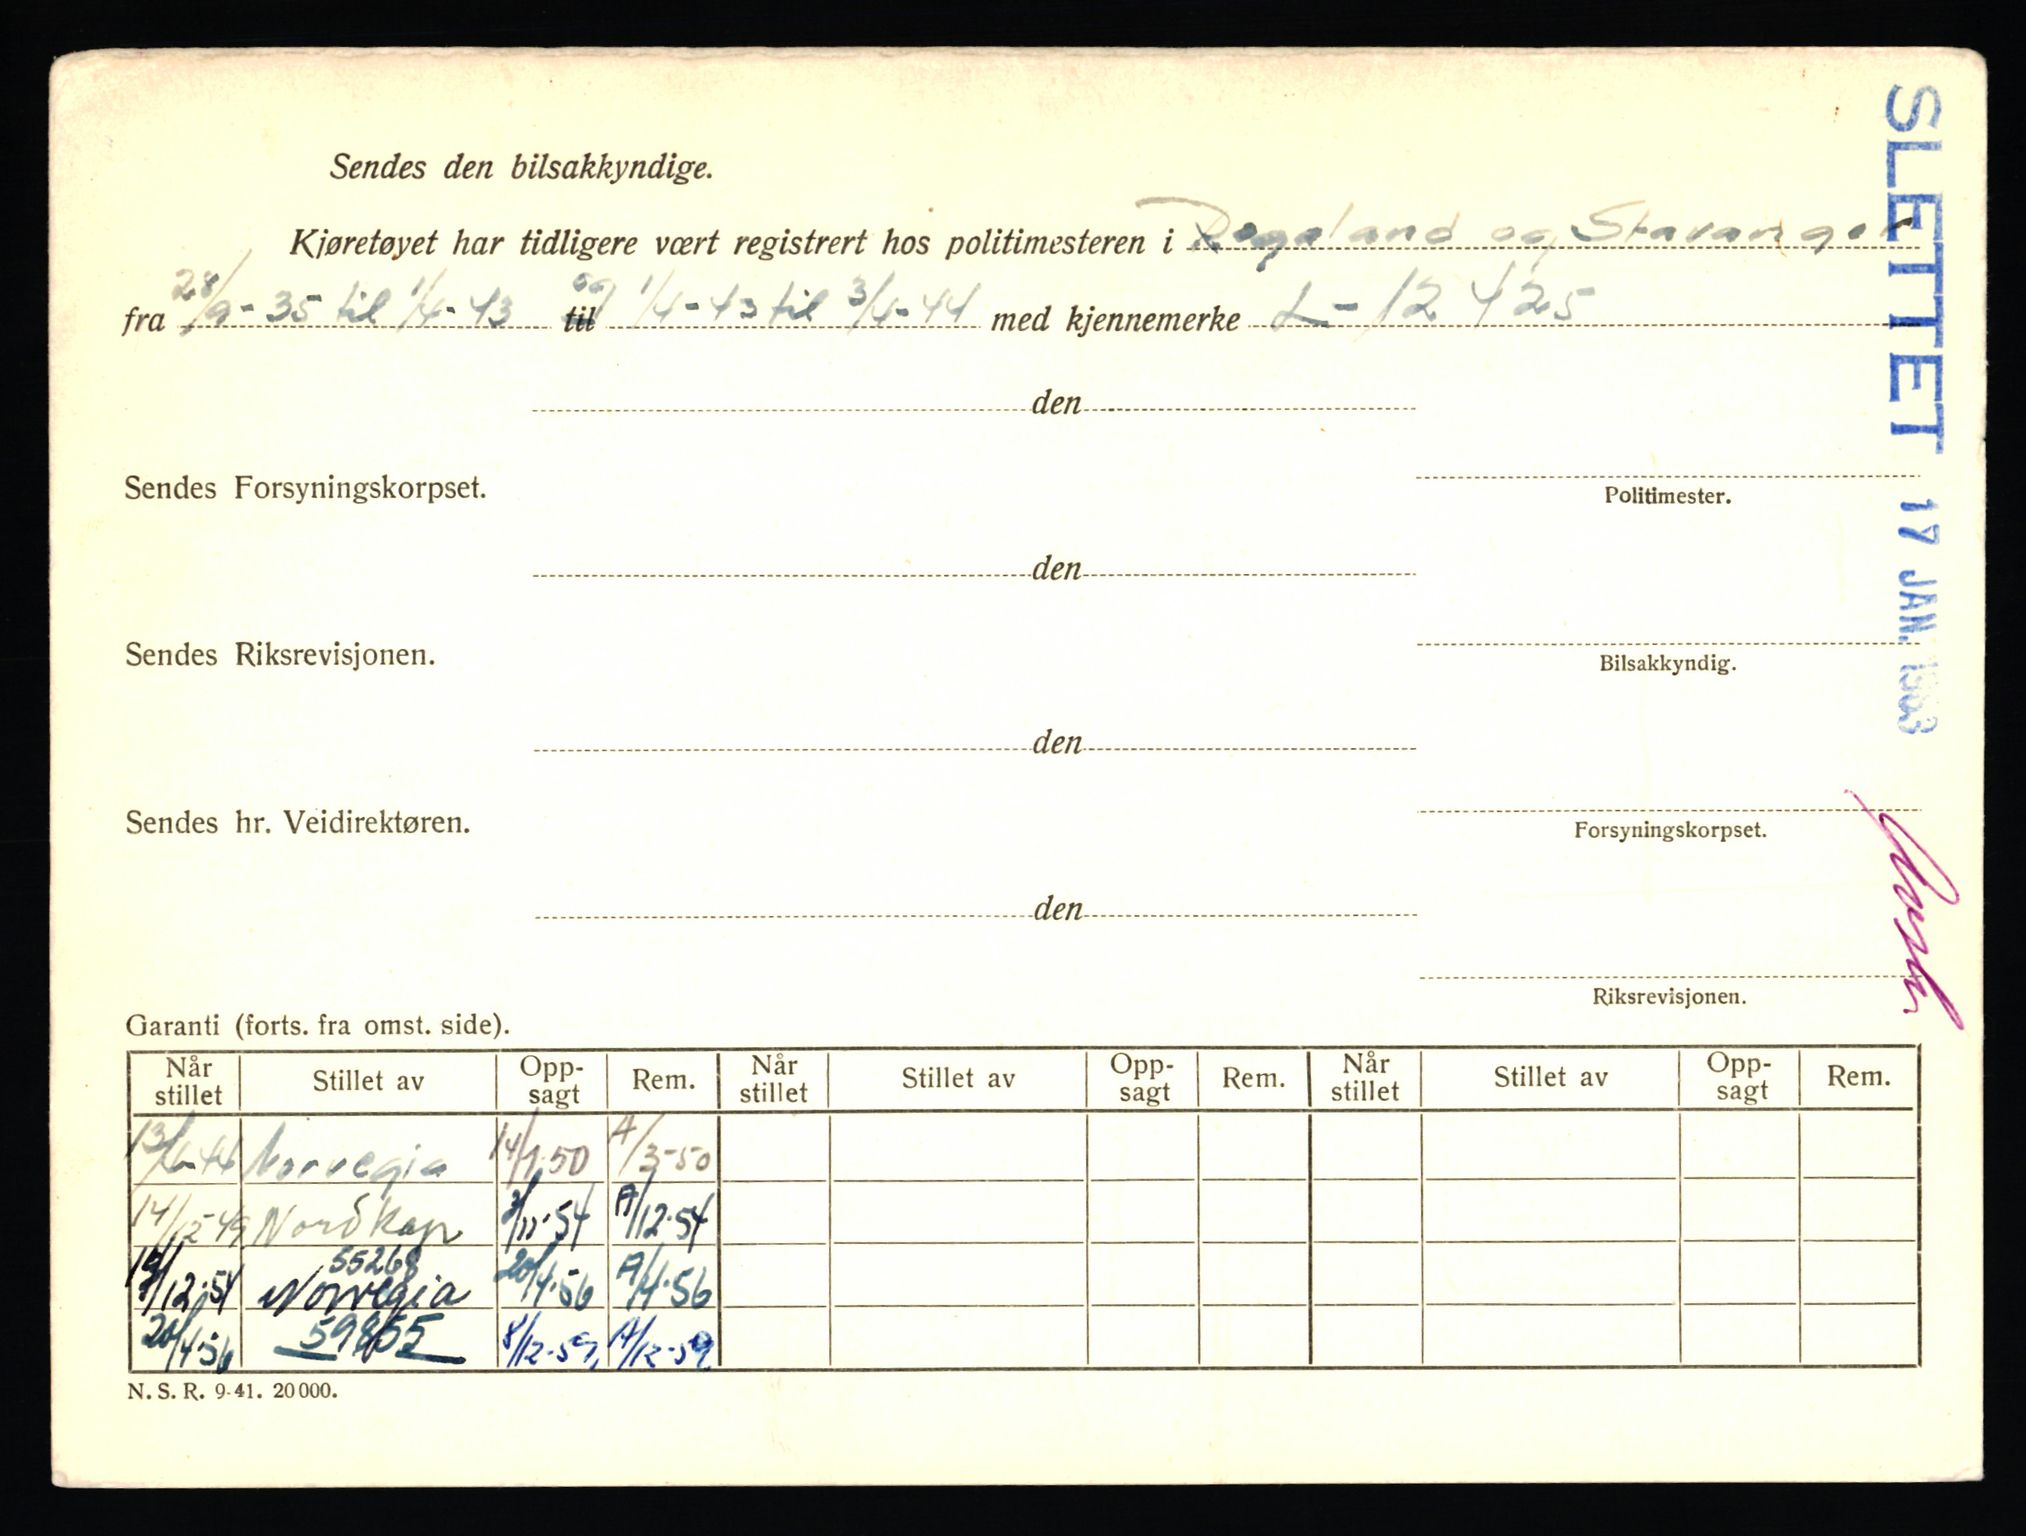 Sendes den bilsakkyndige.
Kjøretøyet har tidligere vært registrert hos politimesteren i Rogaland og Stavanger
fra 28/9-35 til 1/4-43 til og 1/4-43 til 3/4-44 med kjennemerke L-12425
den
Sendes Forsyningskorpset.
Politimester.
den
Sendes Riksrevisjonen.
Bilsakkyndig.
den
Sendes hr. Veidirektøren.
Forsyningskorpset.
den
Riksrevisjonen.
SLETTET 17 JAN. 1963
Garanti (forts. fra omst. side).
Når stillet Stillet av Opp-sagt Rem. Når stillet Stillet av Opp-sagt Rem. Når stillet Stillet av Opp-sagt Rem.
13/4-44 Norvegia 14/1-50 A/3-50
14/12-49 Nordkap 3/11-54 A/12-54
55268
/12-54 Norvegia 20/4-56 A/4-56
20/4-56 59855 8/12-59 A/12-59
N. S. R. 9-41. 20000.